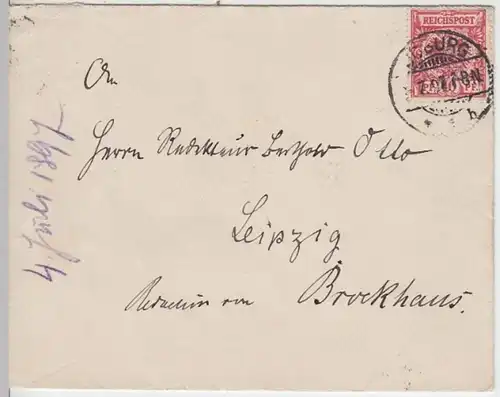 REICHSPOST
An
Herrn Redakteur Berthold Otto
Leipzig
Redaktion von Brockhaus.
4. Juli 1897